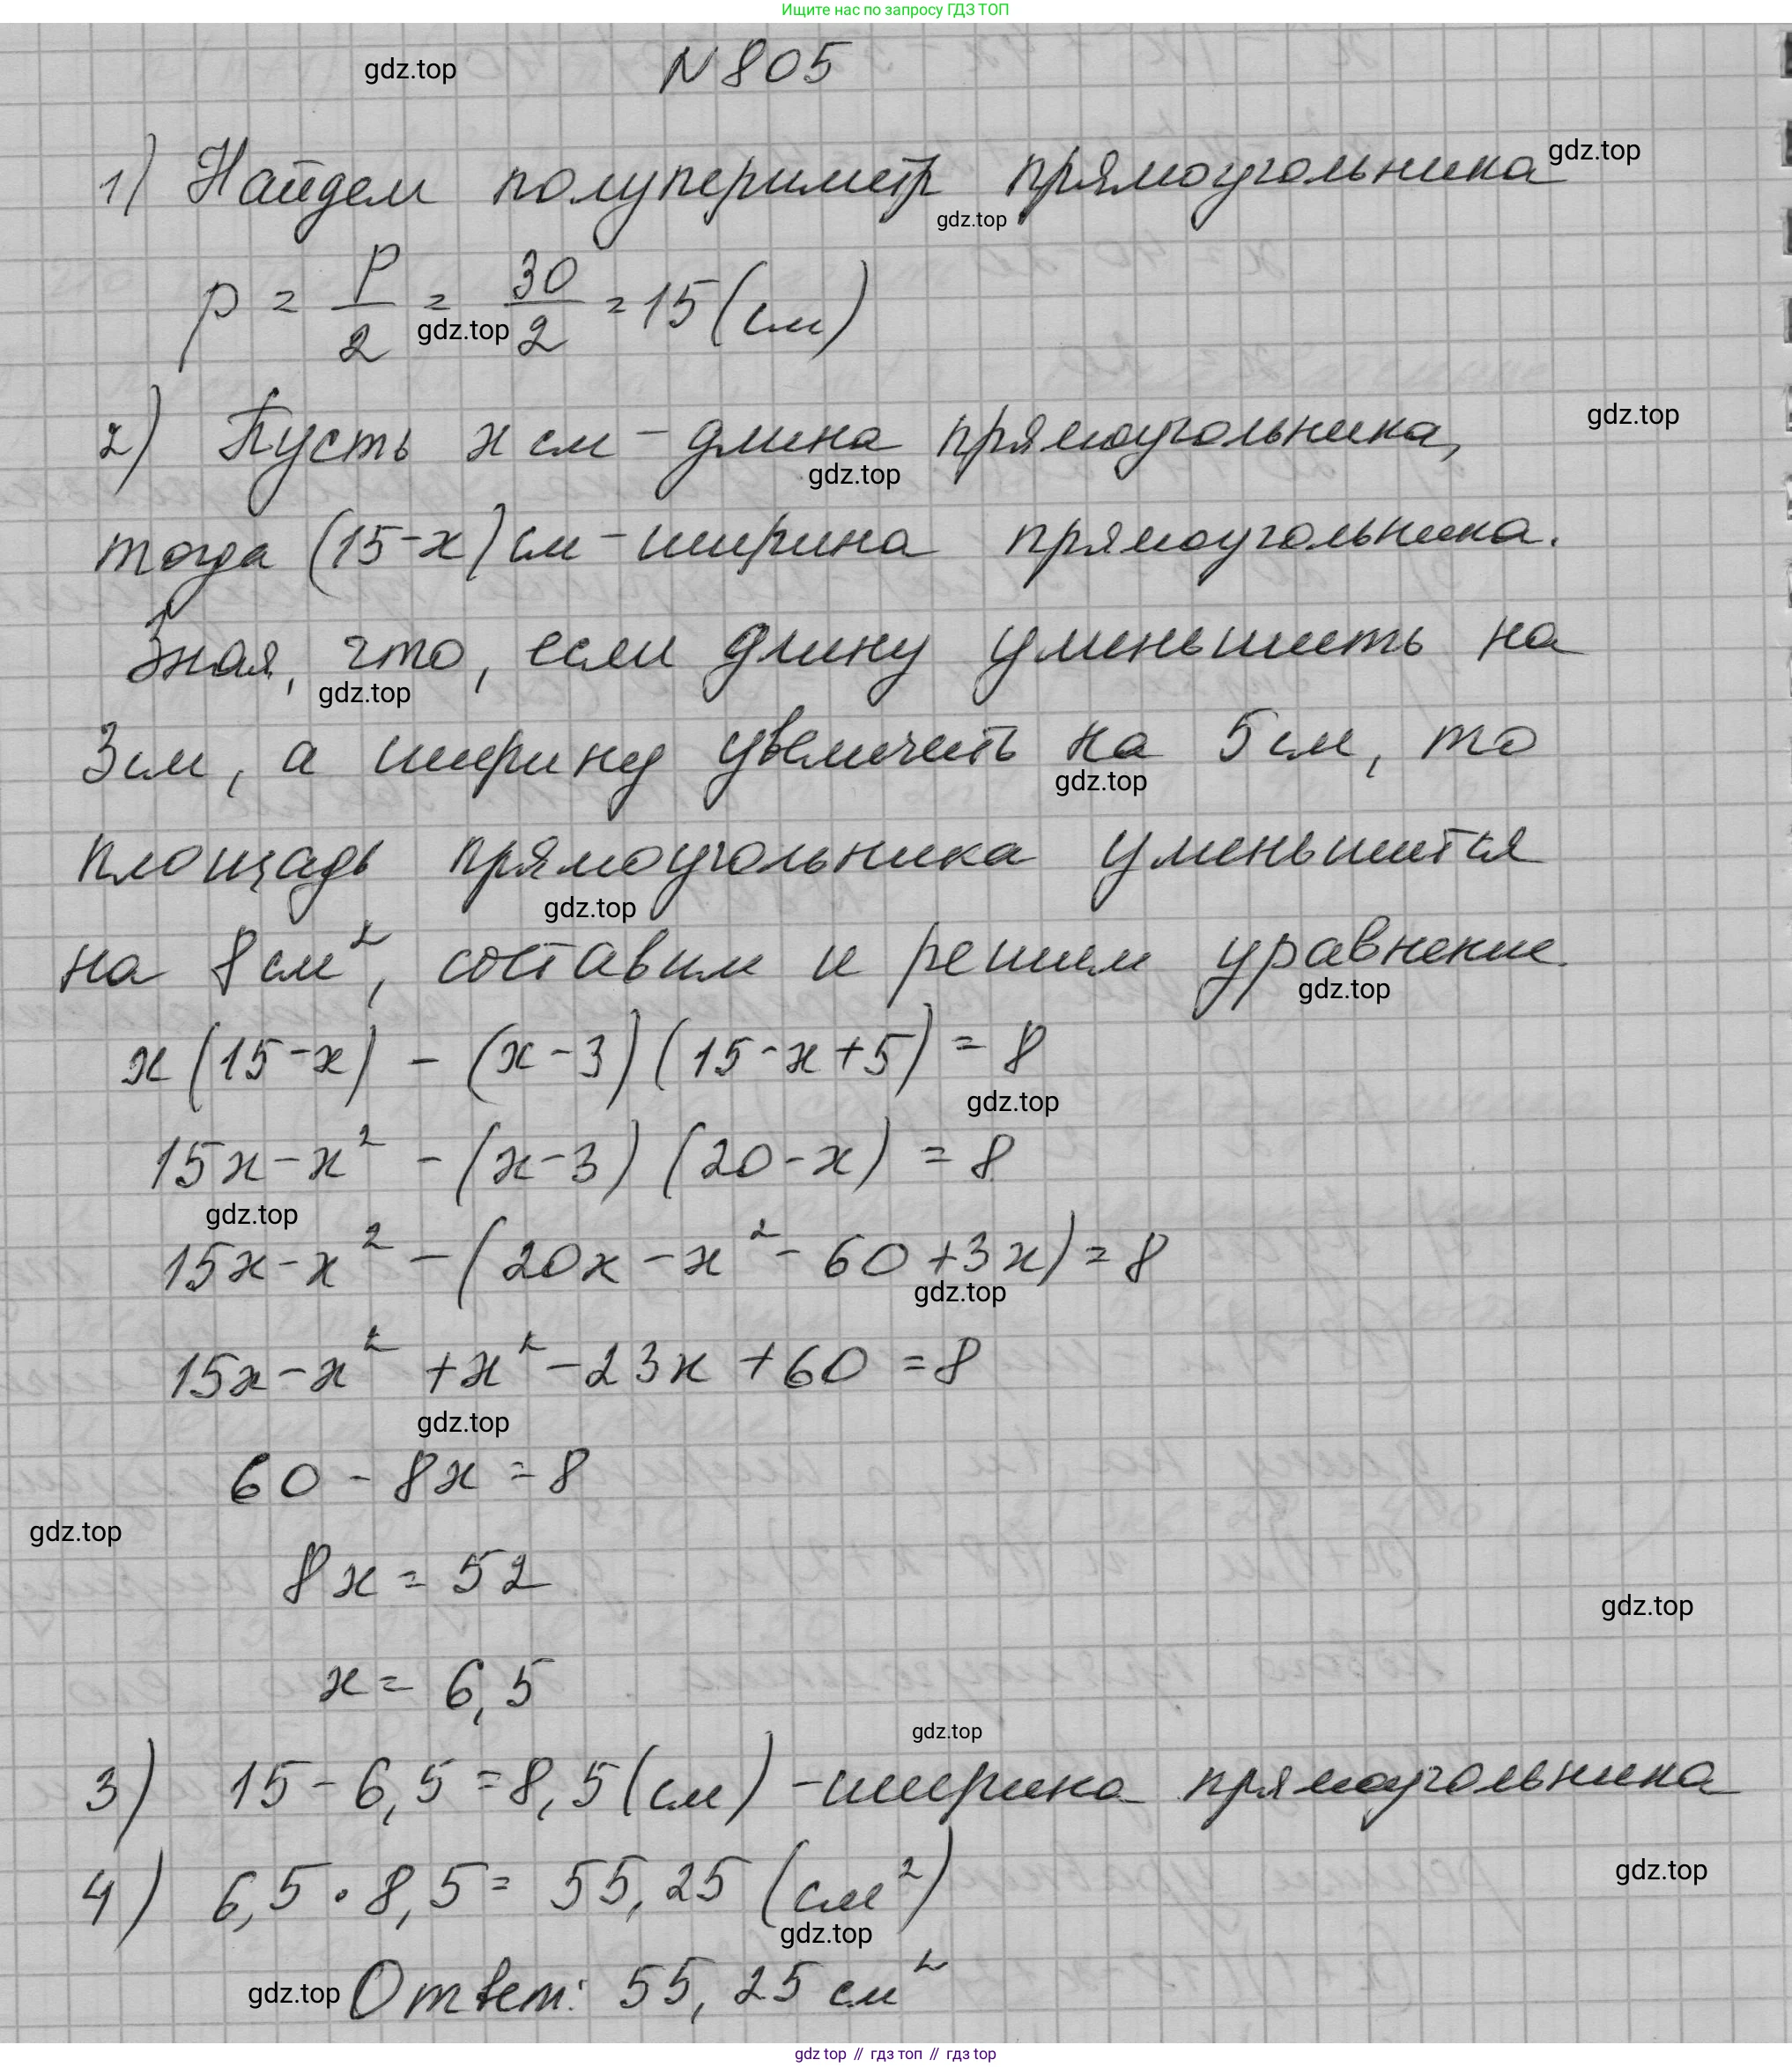 Ищите нас по запросу ГДЗ ТОП
gdz.top
N 805
gdz.top
1) Найдем полупериметр прямоугольника
gdz.top
p = P/2 = 30/2 = 15 (см)
gdz.top
gdz.top
2) Пусть x см - длина прямоугольника,
gdz.top
тогда (15-x) см - ширина прямоугольника.
Зная, что, если длину уменьшить на
gdz.top
3 см, а ширину увеличить на 5 см, то
gdz.top
площадь прямоугольника уменьшится
gdz.top
на 8 см², составим и решим уравнение.
gdz.top
x(15-x) - (x-3)(15-x+5) = 8
gdz.top
15x-x² - (x-3)(20-x) = 8
gdz.top
15x-x² - (20x-x²-60+3x) = 8
gdz.top
15x-x² +x²-23x+60 = 8
gdz.top
60 - 8x = 8
gdz.top
8x = 52
gdz.top
x = 6,5
gdz.top
3) 15-6,5=8,5(см) - ширина прямоугольника
gdz.top
4) 6,5 · 8,5 = 55,25 (см²)
gdz.top
gdz.top
Ответ: 55,25 см²
gdz top // гдз топ // гдз top